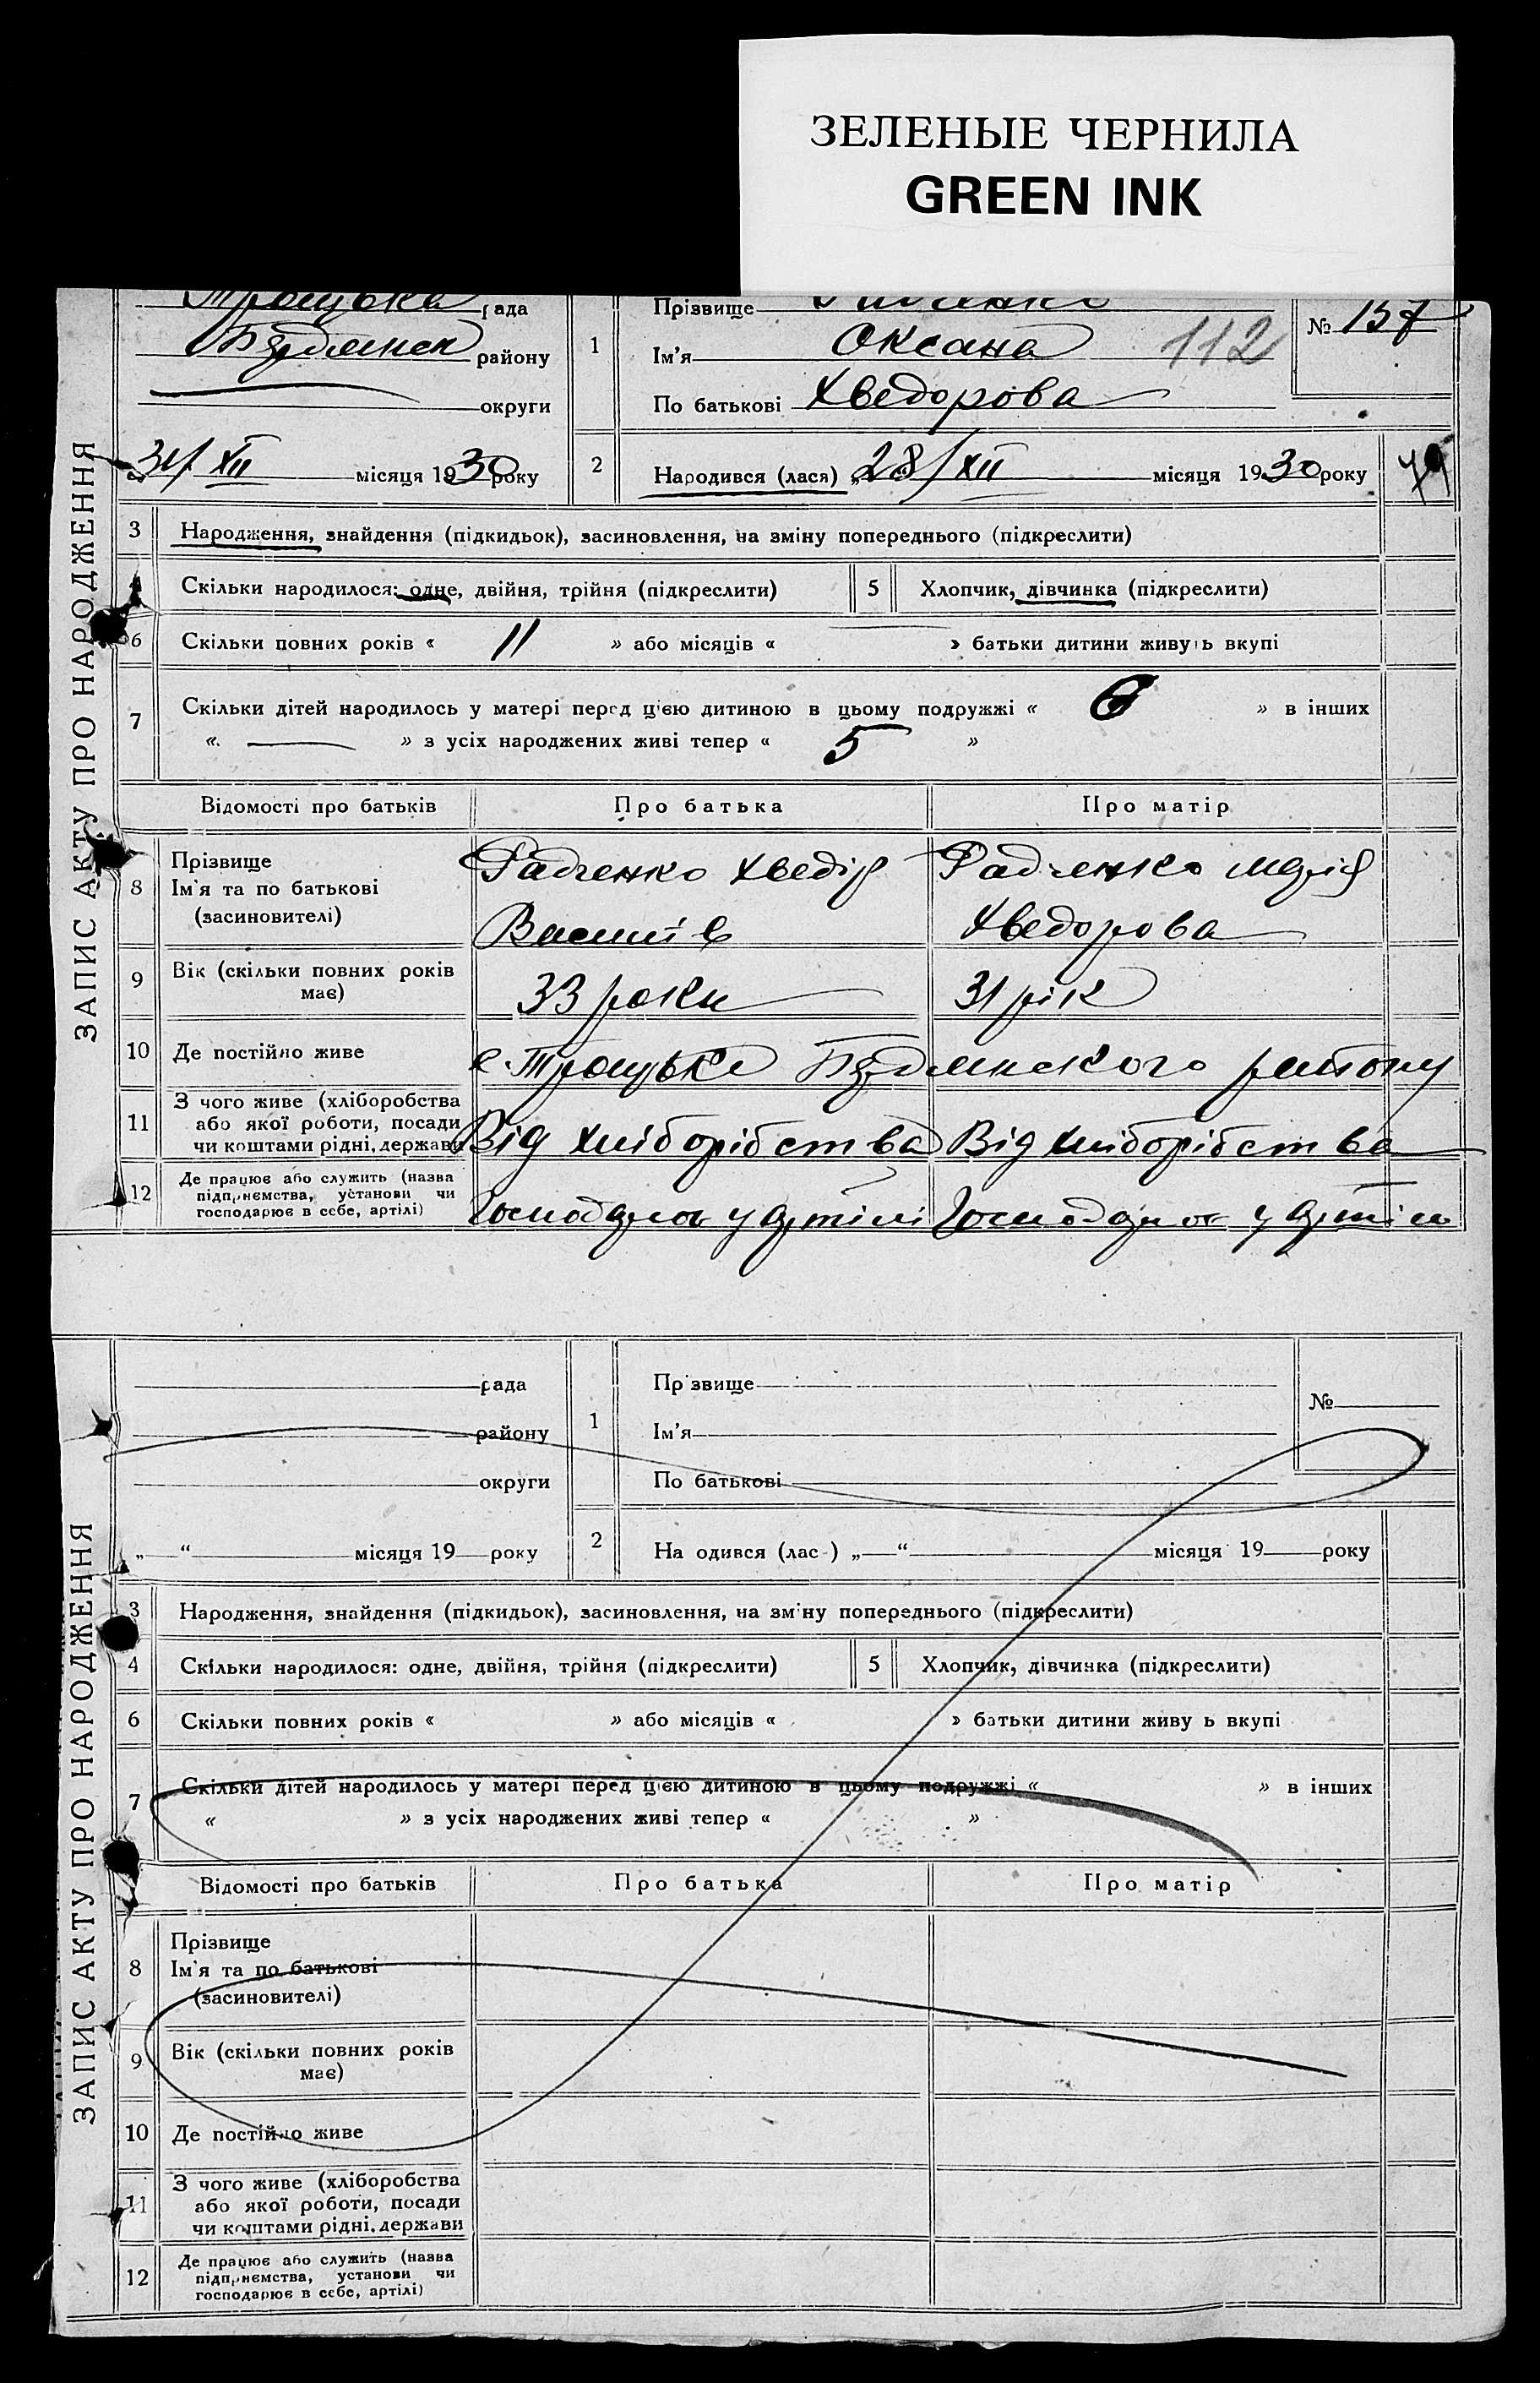 ЗЕЛЕНЫЕ ЧЕРНИЛА
GREEN INK
рада
району
округи
31/XII місяця 1930 року
1
Прізвище
Ім'я Оксана 112
По батькові Хведорова
№ 157
2 Народився (лася) „28/XII місяця 1930 року
79
ЗАПИС АКТУ ПРО НАРОДЖЕННЯ
3 Народження, знайдення (підкидьок), засиновлення, на зміну попереднього (підкреслити)
4 Скільки народилося: одне, двійня, трійня (підкреслити) 5 Хлопчик, дівчинка (підкреслити)
6 Скільки повних років « 11 » або місяців « — » батьки дитини живуть вкупі
7 Скільки дітей народилось у матері перед цією дитиною в цьому подружжі « 6 » в інших
« — » з усіх народжених живі тепер « 5 »
Відомості про батьків Про батька Про матір
8 Прізвище
Ім'я та по батькові
(засиновителі)
Радченко Хведір
Василів
Радченко Марія
Хведорова
9 Вік (скільки повних років
має)
33 роки 31 рік
10 Де постійно живе с. Троцьке району
11 З чого живе (хліборобства
або якої роботи, посади
чи коштами рідні, держави
Від хліборібства Від хліборібства
12 Де працює або служить (назва
підприємства, установи чи
господарює в себе, артілі)
у артілі у артілі
рада
району
округи
„—“ місяця 19 року
1
Пр звище
Ім'я
По батькові
№
2 На одився (лас ) „—“ місяця 19 року
ЗАПИС АКТУ ПРО НАРОДЖЕННЯ
3 Народження, знайдення (підкидьок), засиновлення, на зміну попереднього (підкреслити)
4 Скільки народилося: одне, двійня, трійня (підкреслити) 5 Хлопчик, дівчинка (підкреслити)
6 Скільки повних років « » або місяців « » батьки дитини живу ь вкупі
7 Скільки дітей народилось у матері перед цією дитиною в цьому подружжі « » в інших
« » з усіх народжених живі тепер « »
Відомості про батьків Про батька Про матір
8 Прізвище
Ім'я та по батькові
(засиновителі)
9 Вік (скільки повних років
має)
10 Де постійно живе
11 З чого живе (хліборобства
або якої роботи, посади
чи коштами рідні, держави
12 Де працює або служить (назва
підприємства, установи чи
господарює в себе, артілі)